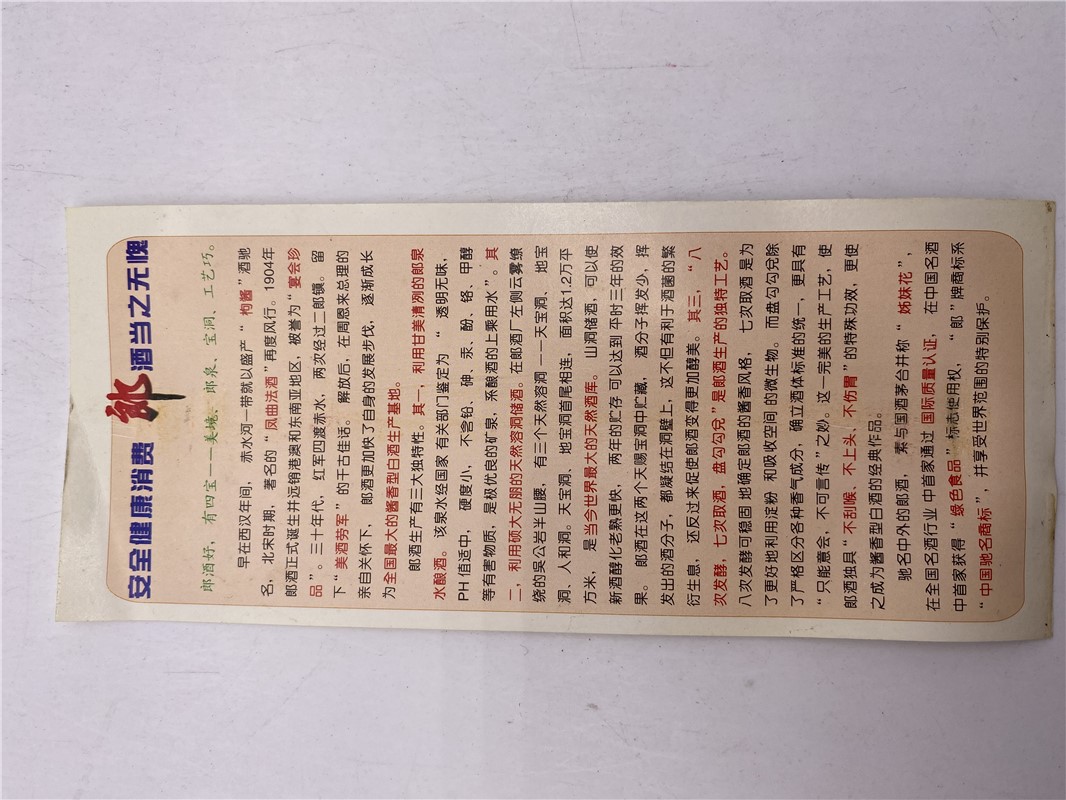 安全健康消费 郎酒当之无愧
郎酒好，有四宝——美境、郎泉、宝洞、工艺巧。
早在西汉年间， 赤水河一带就以盛产“ 枸酱”酒驰
名，北宋时期，著名的“ 凤曲法酒”再度风行。1904年
郎酒正式诞生并远销港澳和东南亚地区，被誉为“ 宴会珍
品”。三十年代，红军四渡赤水， 两次经过二郎镇。留
下“ 美酒劳军” 的千古佳话。 解放后，在周恩来总理的
亲自关怀下， 郎酒更加快了自身的发展步伐，逐渐成长
为全国最大的酱香型白酒生产基地。
郎酒生产有三大独特性。其一，利用甘美清冽的郎泉
水酿酒。 该泉水经国家 有关部门鉴定为 “ 透明无味，
PH 值适中， 硬度小，不含铅、砷、汞、酚、铬、甲醇
等有害物质，是极优良的矿泉，系酿酒的上乘用水” 。其
二，利用硕大无朋的天然溶洞储酒。在郎酒厂左侧云雾缭
绕的吴公岩半山腰，有三个天然溶洞 ——天宝洞、地宝
洞、人和洞。天宝洞、地宝洞首尾相连， 面积达1.2万平
方米， 是当今世界最大的天然酒库。 山洞储酒，可以使
新酒醇化老熟更快， 两年的贮存 可以达到 平时三年的效
果。 郎酒在这两个天赐宝洞中贮藏， 酒分子挥发少，挥
发出的酒分子，都凝结在洞壁上，这不但有利于酒菌的繁
衍生息， 还反过来促使郎酒变得更加醇美。 其三，“ 八
次发酵，七次取酒，盘勾勾兑” 是郎酒生产的独特工艺。
八次发酵可稳固 地确定郎酒的酱香风格， 七次取酒 是为
了更好地利用淀粉 和吸收空间 的微生物。而盘勾勾兑除
了严格区分各种香气成分，确立酒体标准的统一，更具有
“ 只能意会，不可言传” 之妙。这一完美的生产工艺，使
郎酒独具“ 不刮喉、不上头、不伤胃” 的特殊功效，更使
之成为酱香型白酒的经典作品。
驰名中外的郎酒， 素与国酒茅台并称“ 姊妹花”，
在全国名酒行业 中首家通过 国际质量认证， 在中国名酒
中首家获得“ 绿色食品” 标志使用权， “ 郎”牌商标系
“ 中国驰名商标”，并享受世界范围的特别保护。